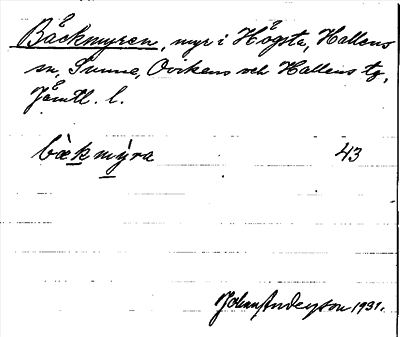 Bäckmyren, myr i Högsta, Hallens
sn, Sunne, Ovikens och Hallens tg,
Jämtl. l.
bækmýra 43
John Anderson 1931.